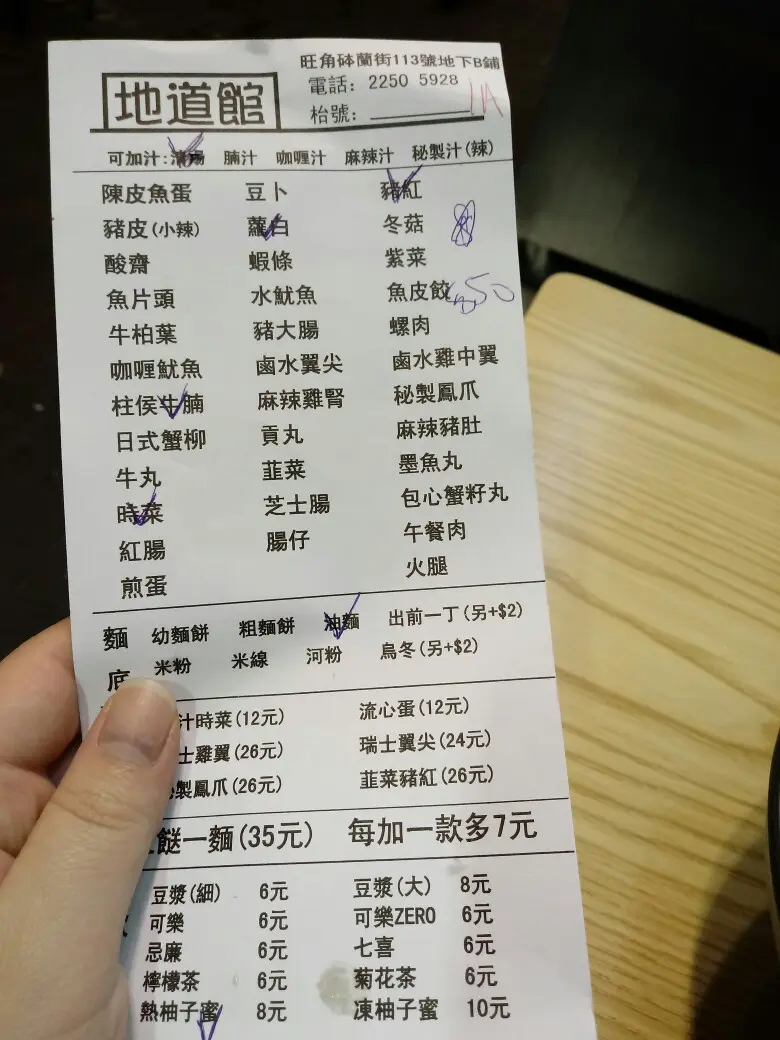 旺角砵蘭街113號地下B鋪
地道館
電話: 2250 5928
枱號: 1A
可加汁: 清湯 腩汁 咖喱汁 麻辣汁 秘製汁(辣)
陳皮魚蛋 豆卜 豬紅
豬皮(小辣) 蘿白 冬菇
酸齋 蝦條 紫菜
魚片頭 水魷魚 魚皮餃 50
牛柏葉 豬大腸 螺肉
咖喱魷魚 鹵水翼尖 鹵水雞中翼
柱侯牛腩 麻辣雞腎 秘製鳳爪
日式蟹柳 貢丸 麻辣豬肚
牛丸 韮菜 墨魚丸
時菜 芝士腸 包心蟹籽丸
紅腸 腸仔 午餐肉
煎蛋 火腿
麵底 幼麵餅 粗麵餅 油麵 出前一丁(另+$2)
米粉 米線 河粉 烏冬(另+$2)
汁時菜(12元) 流心蛋(12元)
士雞翼(26元) 瑞士翼尖(24元)
製鳳爪(26元) 韮菜豬紅(26元)
餸一麵(35元) 每加一款多7元
豆漿(細) 6元 豆漿(大) 8元
可樂 6元 可樂ZERO 6元
忌廉 6元 七喜 6元
檸檬茶 6元 菊花茶 6元
熱柚子蜜 8元 凍柚子蜜 10元